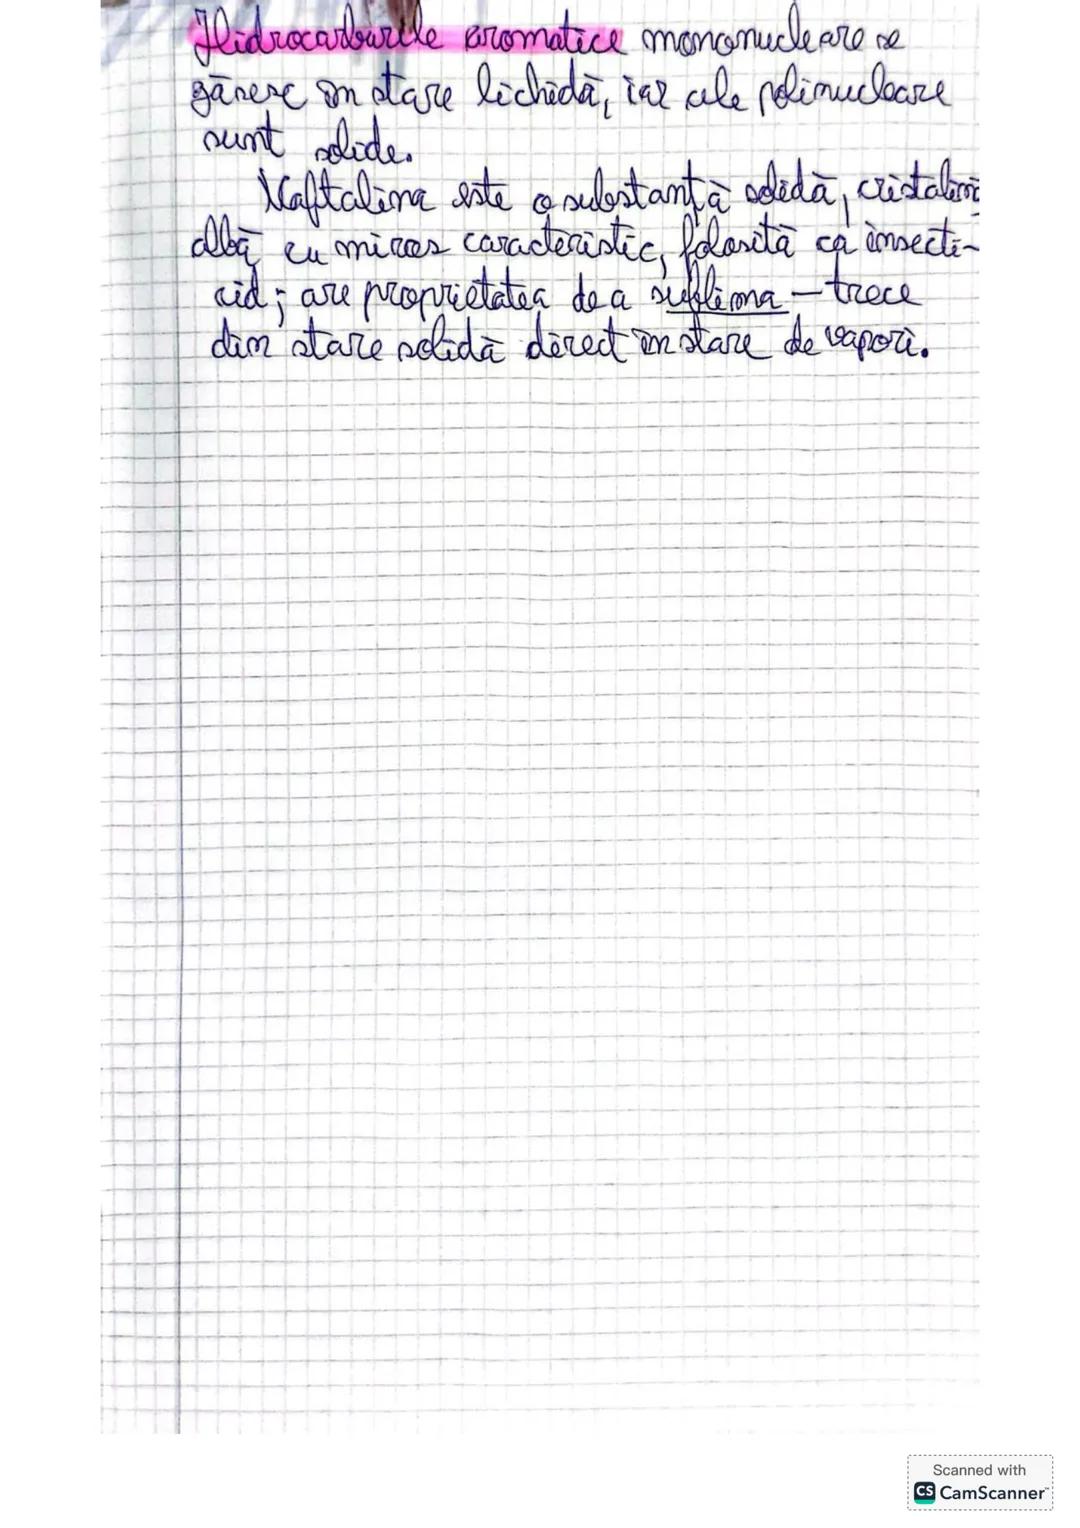 Hidrocarburile aromatice mononucleare se
găsesc în stare lichidă, iar cele polinucleare
sunt solide.
Naftalina este o substanță solidă, cristalină
albă cu miros caracteristic, folosită ca insecti-
cid; are proprietatea de a sublima – trece
din stare solidă direct în stare de vapori.
Scanned with
CS CamScanner